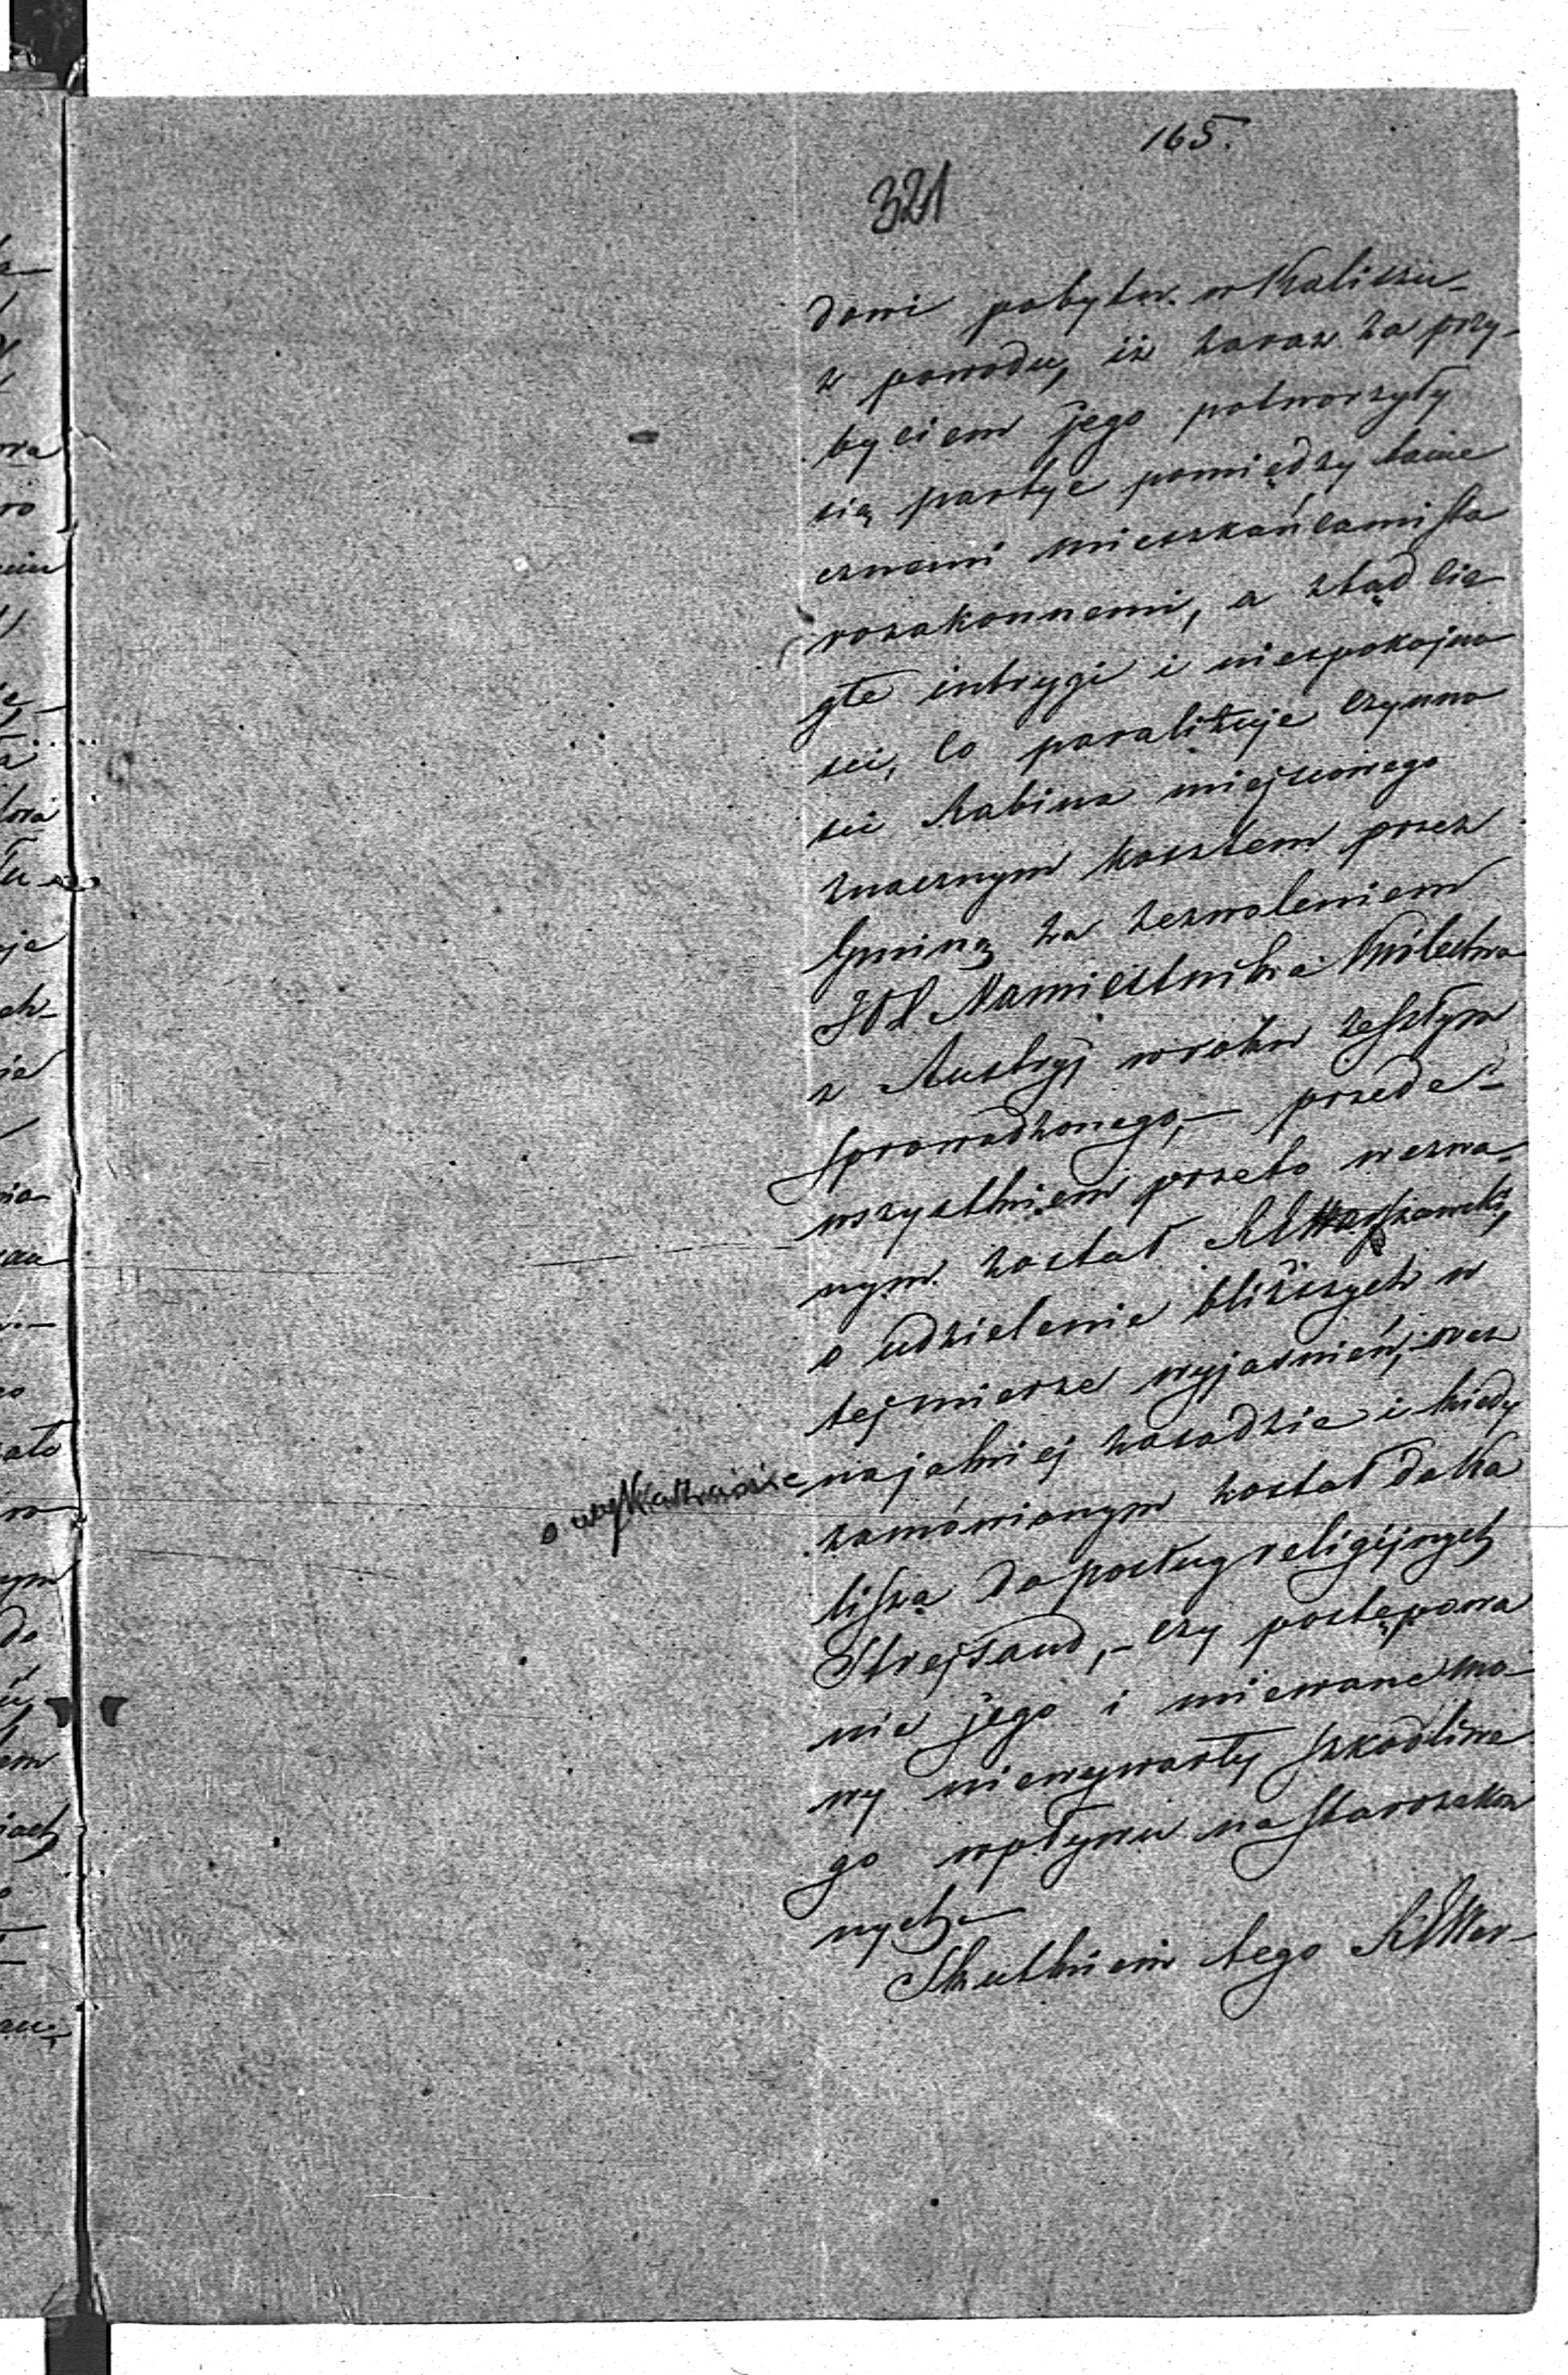 165.
321
dowi pobytu w Kaliszu
z powodu, iż zaraz za przy-
byciem jego potworzyły
się partye pomiędzy tame
cznemi mieszkańcami sta
rozakonnemi, a ztąd cią
głe intrygi i niespokojno
sci, co paraliżuje czynno
sci Rabina miejscowego
znacznym kosztem przez
Gminę za zezwoleniem
JO Namiestnika Królestwa
z Austryj w roku zeszłym
sprowadzonego, – przede-
wszystkiem przeto wezwa-
nym został Warszawski,
o udzielenie bliższych w
tej mierze wyjasnień, oraz
o wykazanie
na jakiej zasadzie i kiedy
zamówionym został do Ka
lisza do posług religijnych
Strejsand, – czy postępowa
nie jego i miewane mo-
wy niewywarły szkodliwe
go wpływu na starozakon
nych. –
Skutkiem tego War-